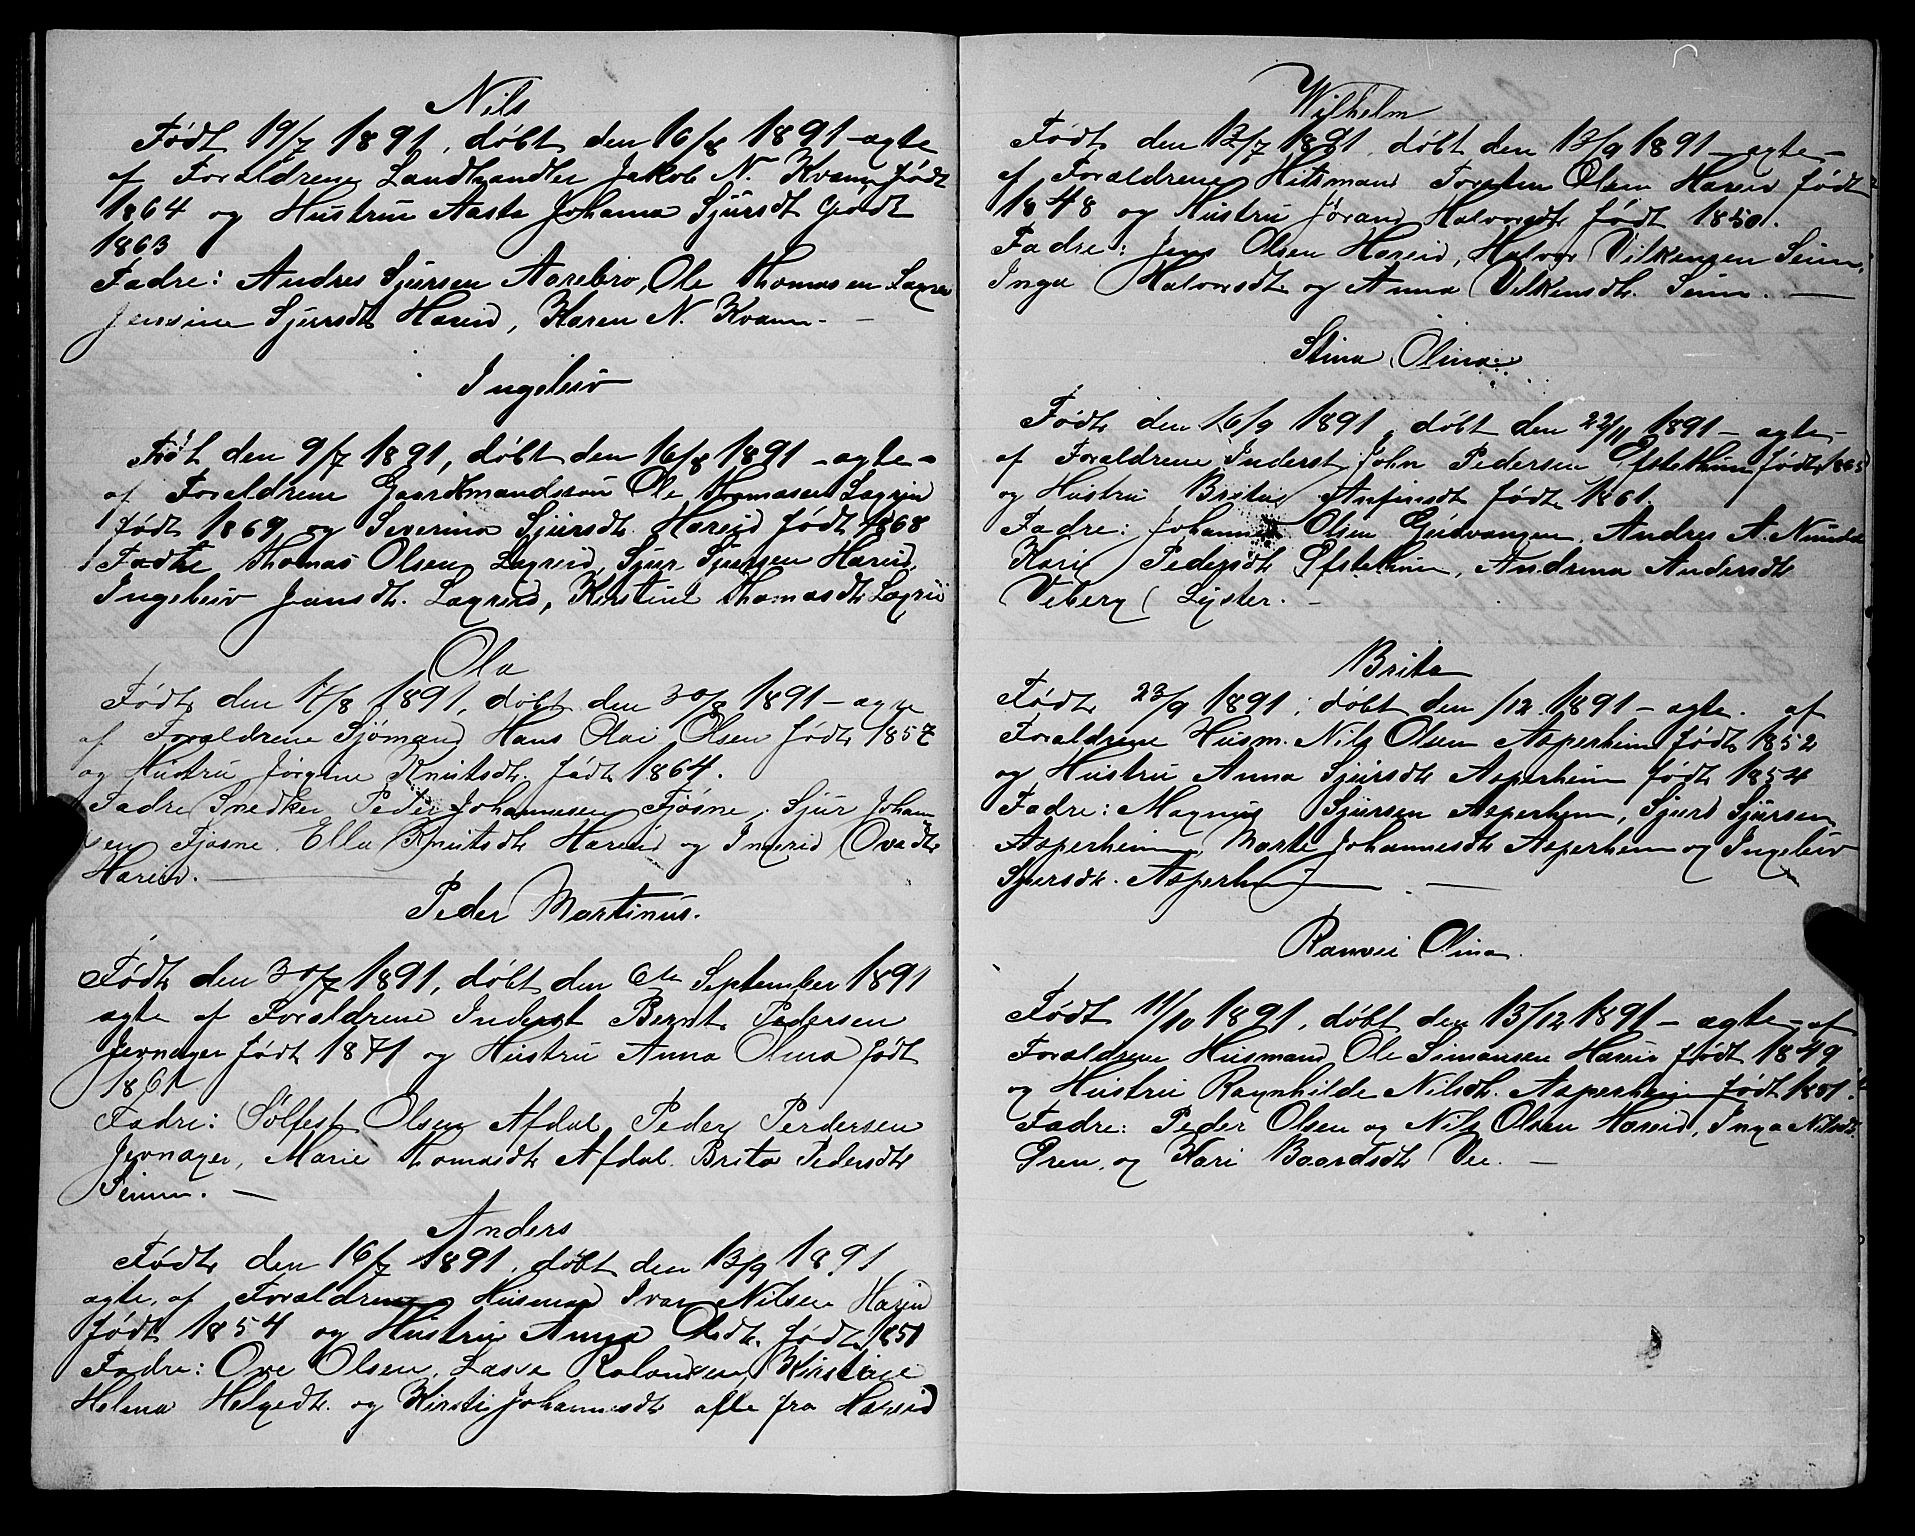 Nils
Født 19/7 1891, døbt den 16/8 1891 - ægte
af Foræld­rene Landhandler Jakob N. Kvam født
1864 og Hustru Aasta Johanna Sjursdt født
1863
Fadre: Andres Sjursen Aarebro, Ole Thomasen
Jensine Sjursdt Hareid, Karen N. Kvam. -
Ingeleiv
Født den 9/7 1891, døbt den 16/8 1891 - ægte -
af Forældrene Ole Thomasen Lægreid
født 1869 og Severina Sjursdt. Hareid født 1868
Thomas Olsen Lægreid, Sjur Sjursen Hareid,
Ingeleiv Jansdt. Lægreid, Kirstine Thomasdt Lægreid
Ola
Født den 1891, døbt den 30/8 1891 - ægte
af Forældrene Sjømand Hans Olai Olsen født 1857
og Hustru Jørgine Knutsdt. født 1864.
Fadre Snedker Peder Johannesen Fjøsne, Sjur Johann
sen Fjøsne, Ella Knutsdt Hareid og Ingrid Ovedt
Hareid.
Peder Martinus.
Født den 30/7 1891, døbt den 6te September 1891
ægte af Forældrene Inderst Bernt Pedersen
Jevnager født 1871 og Hustru Anna Olina født
1861
Fadre: Sølfest Olsen Afdal Peder Perdersen
Jevnager, Marie Thomasdt Afdal. Brita Pedersdt
Seim. -
Anders
Født den 16/7 1891, døbt den 13/9 1891
ægte, af Forældrene Husmand Ivar Nilsen Hareid
født 1854 og Hustru Anna Olsdt. født 1851
Fadre: Ove Olsen, Lasse Kirstine
Helena Helgedt. og Kirsti Johannesdt alle fra Hareid
Wilhelm
Født den 12/7 1891, døbt den 13/9 1891 - ægte -
af Forældrene Torsten Olsen Hareid født
1848 og Hustru Jørand Halvorsdt født 1850.
Fadre: Jens Olsen Hareid, Halvor Vilkensen Seim,
Inga Halvorsdt og Anna Vilkensdt. Seim. -
Stina Olina
Født den 16/9 1891, døbt den 22/11 1891 - ægte -
af Forældrene Inderst John Pedersen Øfstethun født
og Hustru Britha Anfinsdt født 1861.
Fadre: Johannes Olsen Gudvangen, Andres A.
Kari Pedersdt Øfstethun, Andrina Andersdt
Veberg (Lyster. -
Brita
Født 23/9 1891, døbt den /12 1891 - ægte. af
Forældrene Husm. Nils Olsen Asperheim født 1852
og Hustru Anna Sjursdt Asperheim født 1854
Fadre: Magnus Sjursen Asperheim, Sjurd Sjursen
Asperheim, Marte Johannesdt Asperheim og Ingeleiv
Sjursdt. Asperheim -
Ranvei Olina.
Født 11/10 1891, døbt den 13/12 1891 - ægte - af
Forældrene Husmand Ole Simonsen Hareid født 1849
og Hustru Ragnhilde Nilsdt. Asperheim født
Fadre: Peder Olsen og Nils Olsen Hareid, Inga Nilsdt
Gren, og Kari Baardsdt Vee. -